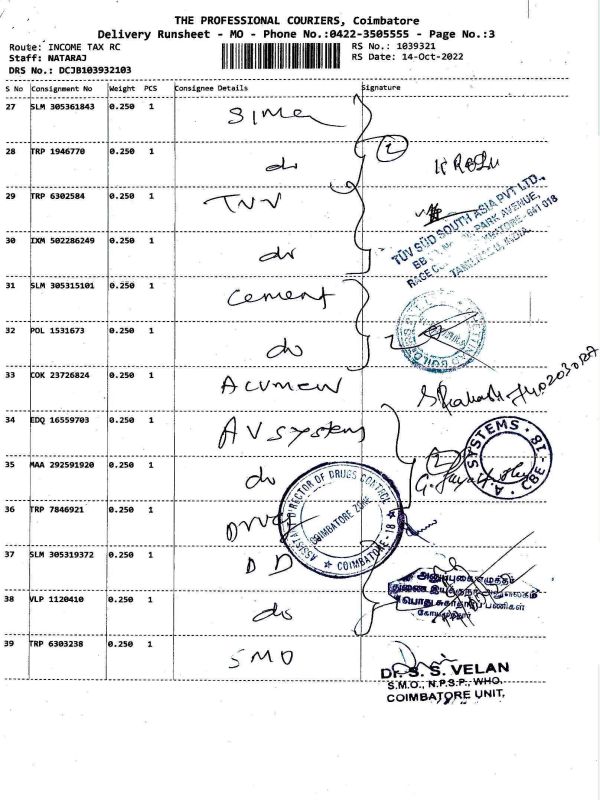 THE PROFESSIONAL COURIERS, Coimbatore
Delivery Runsheet - MO - Phone No.:0422-3505555 - Page No.:3
Route: INCOME TAX RC RS No.: 1039321
Staff: NATARAJ RS Date: 14-Oct-2022
DRS No.: DCJB103932103
S No Consignment No Weight PCS Consignee Details Signature
27 SLM 305361843 0.250 1 SIMA
28 TRP 1946770 0.250 1 do 2
29 TRP 6302584 0.250 1 TUV
TÜV SÜD SOUTH ASIA PVT LTD.,
PARK AVENUE,
RACE
641 018
TAMILNADU, INDIA.
30 IXM 502286249 0.250 1 do
31 SLM 305315101 0.250 1 Cement
32 POL 1531673 0.250 1 do
33 COK 23726824 0.250 1 Acumen
34 EDQ 16559703 0.250 1 AV Systems
A.A. SYSTEMS * CBE - 18 *
35 MAA 292591920 0.250 1 do 2
ASSISTANT DIRECTOR OF DRUGS CONTROL
COIMBATORE ZONE
COIMBATORE - 18
36 TRP 7846921 0.250 1 Drug
37 SLM 305319372 0.250 1 DD
38 VLP 1120410 0.250 1 do
39 TRP 6303238 0.250 1 SMO
Dr. S. S. VELAN
S.M.O., N.P.S.P., WHO,
COIMBATORE UNIT.